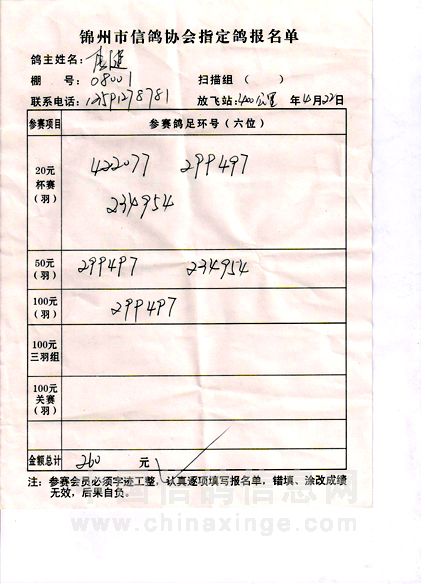 锦州市信鸽协会指定鸽报名单
鸽主姓名:
棚 号: 08001 扫描组 ( )
联系电话: 13591278781 放飞站: 400公里 年4月22日
参赛项目 参赛鸽足环号(六位)
20元 杯赛 (羽) 422077 299497
234954
50元 (羽) 299497 234954
100元 (羽) 299497
100元 三羽组
100元 关赛 (羽)
金额总计 260 元
注: 参赛会员必须字迹工整, 认真逐项填写报名单, 错填、涂改成绩
无效, 后果自负。
中国信鸽信息网
www.chinaxinge.com